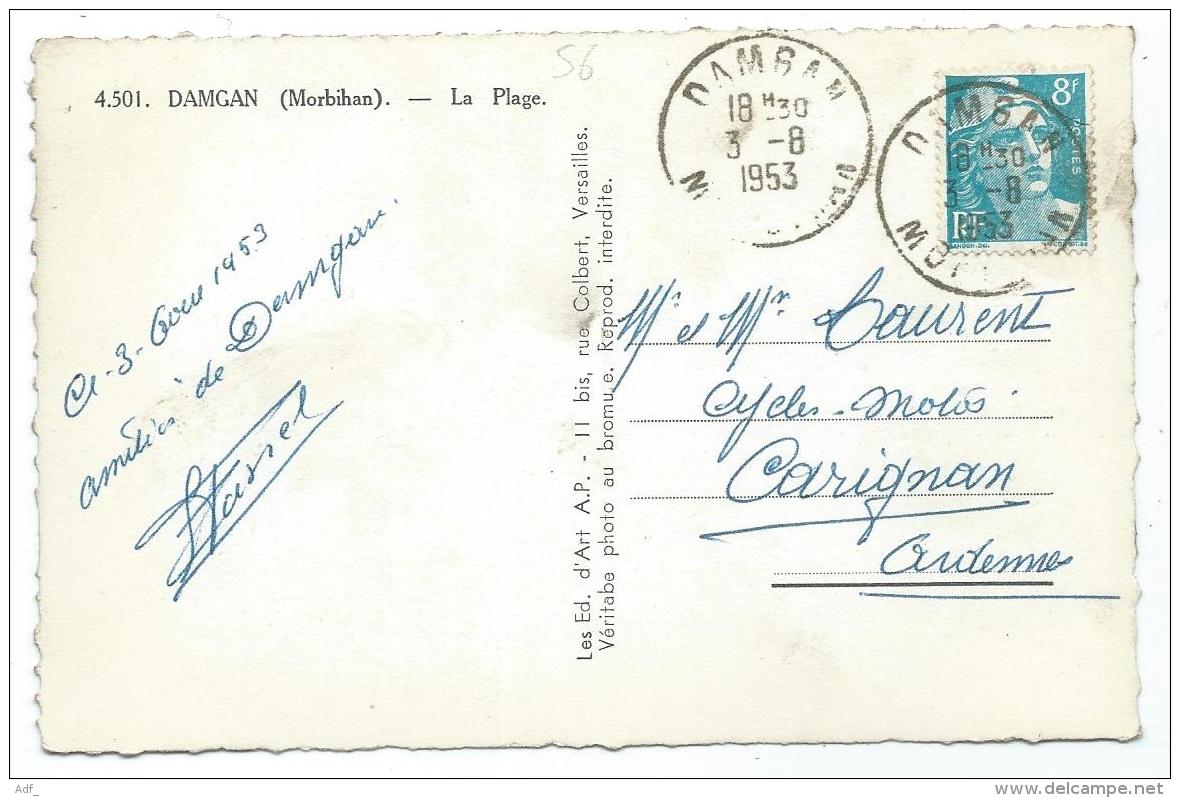 4.501. DAMGAN (Morbihan). — La Plage.
56
DAMGAN
18 H 30
3 -8
1953
8f
POSTES
RF
DAMGAN
18 H 30
3 -8
1953
MORBIHAN
le -3- Aout 1953
amitiés de Damgan.
Les Ed. d'Art A.P. - 11 bis, rue Colbert, Versailles.
Véritabe photo au bromure. Reprod. interdite.
Mr et Mr Laurent
Cycles-Motos
Carignan
Ardennes
Adf_
©delcampe.net